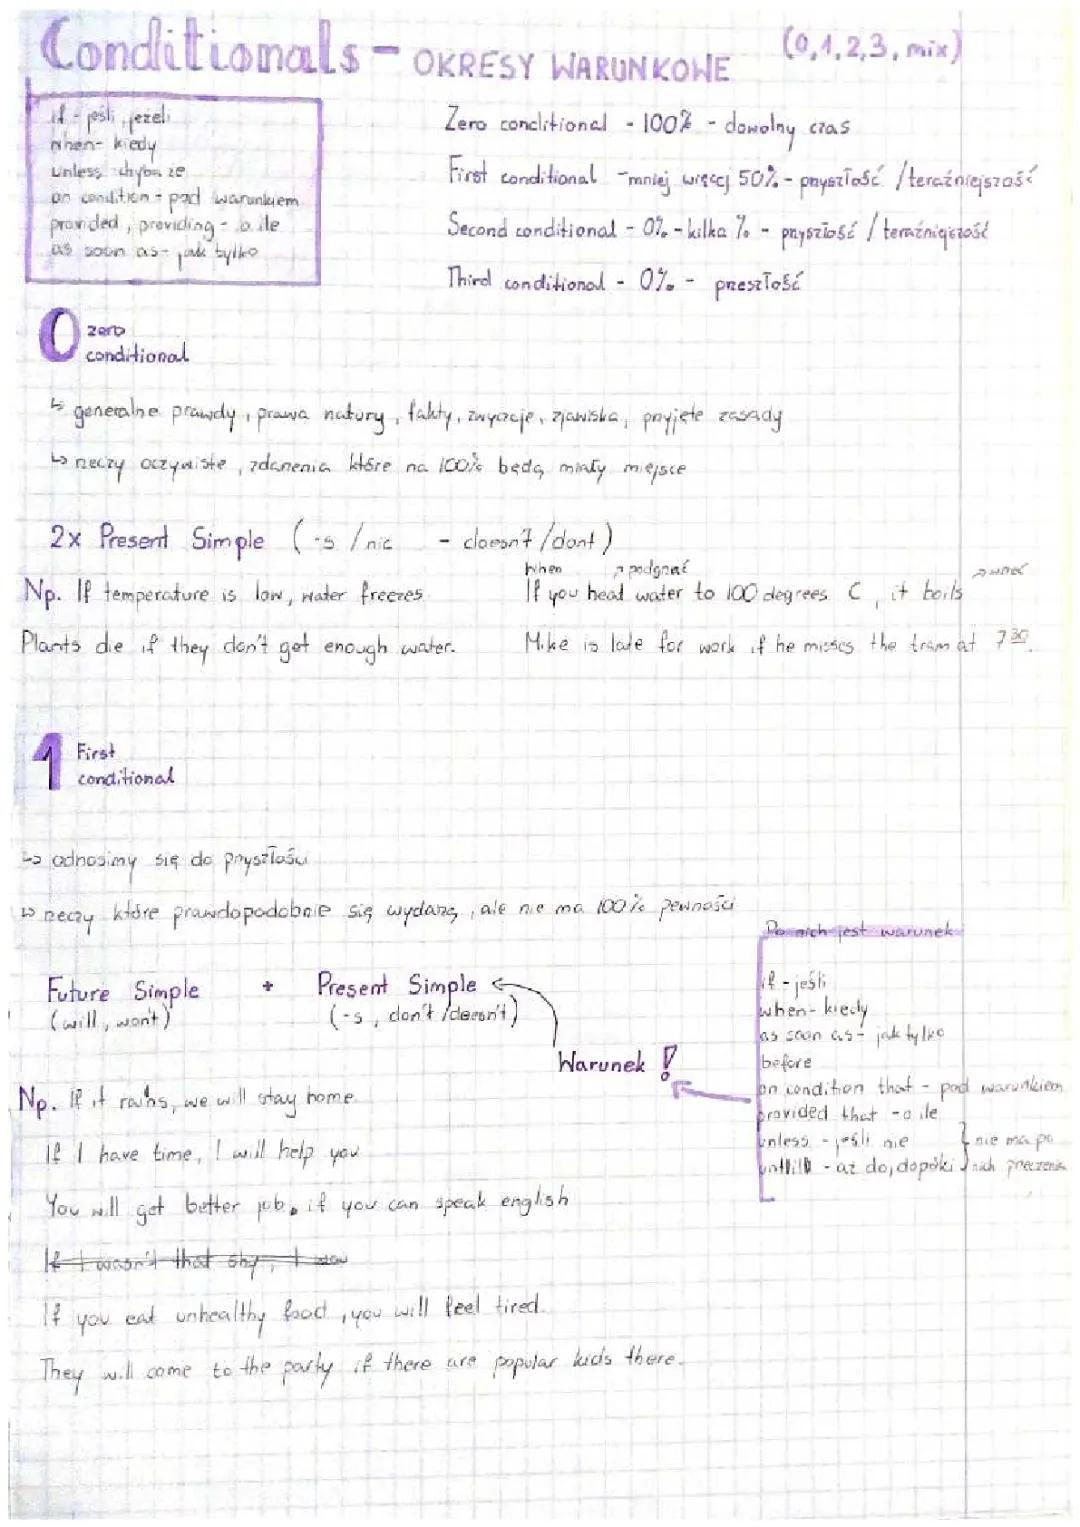 Conditionals - OKRESY WARUNKOWE (0,1,2,3, mix)
if - jeśli, jeżeli
when - kiedy
unless - chyba że
on condition - pod warunkiem
provided, providing - o ile
as soon as - jak tylko
Zero conditional - 100% - dowolny czas
First conditional - mniej więcej 50% - przyszłość / teraźniejszość
Second conditional - 0% - kilka % - przyszłość / teraźniejszość
Third conditional - 0% - przeszłość
0 zero
conditional
↳ generalne prawdy, prawa natury, fakty, zwyczaje, zjawiska, przyjęte zasady
↳ rzeczy oczywiste, zdarzenia które na 100% będą miały miejsce
2x Present Simple (-s / nic - doesn't / dont)
Np. If temperature is low, water freezes
When → podgrzać → wrzeć
If you heat water to 100 degrees C, it boils
Plants die if they don't get enough water.
Mike is late for work if he misses the tram at 7 30.
1 First
conditional
↳ odnosimy się do przyszłości
↳ rzeczy które prawdopodobnie się wydarzą, ale nie ma 100% pewności
Future Simple + Present Simple
(will, won't) (-s, don't / doesn't)
Warunek !
Po nich jest warunek
if - jeśli
when - kiedy
as soon as - jak tylko
before
on condition that - pod warunkiem
provided that - o ile
unless - jeśli nie } nie ma po
until - aż do, dopóki } nich przeczenia
Np. If it rains, we will stay home
If I have time, I will help you
You will get better job, if you can speak english
If I wasn't that shy, I
If you eat unhealthy food, you will feel tired.
They will come to the party if there are popular kids there.